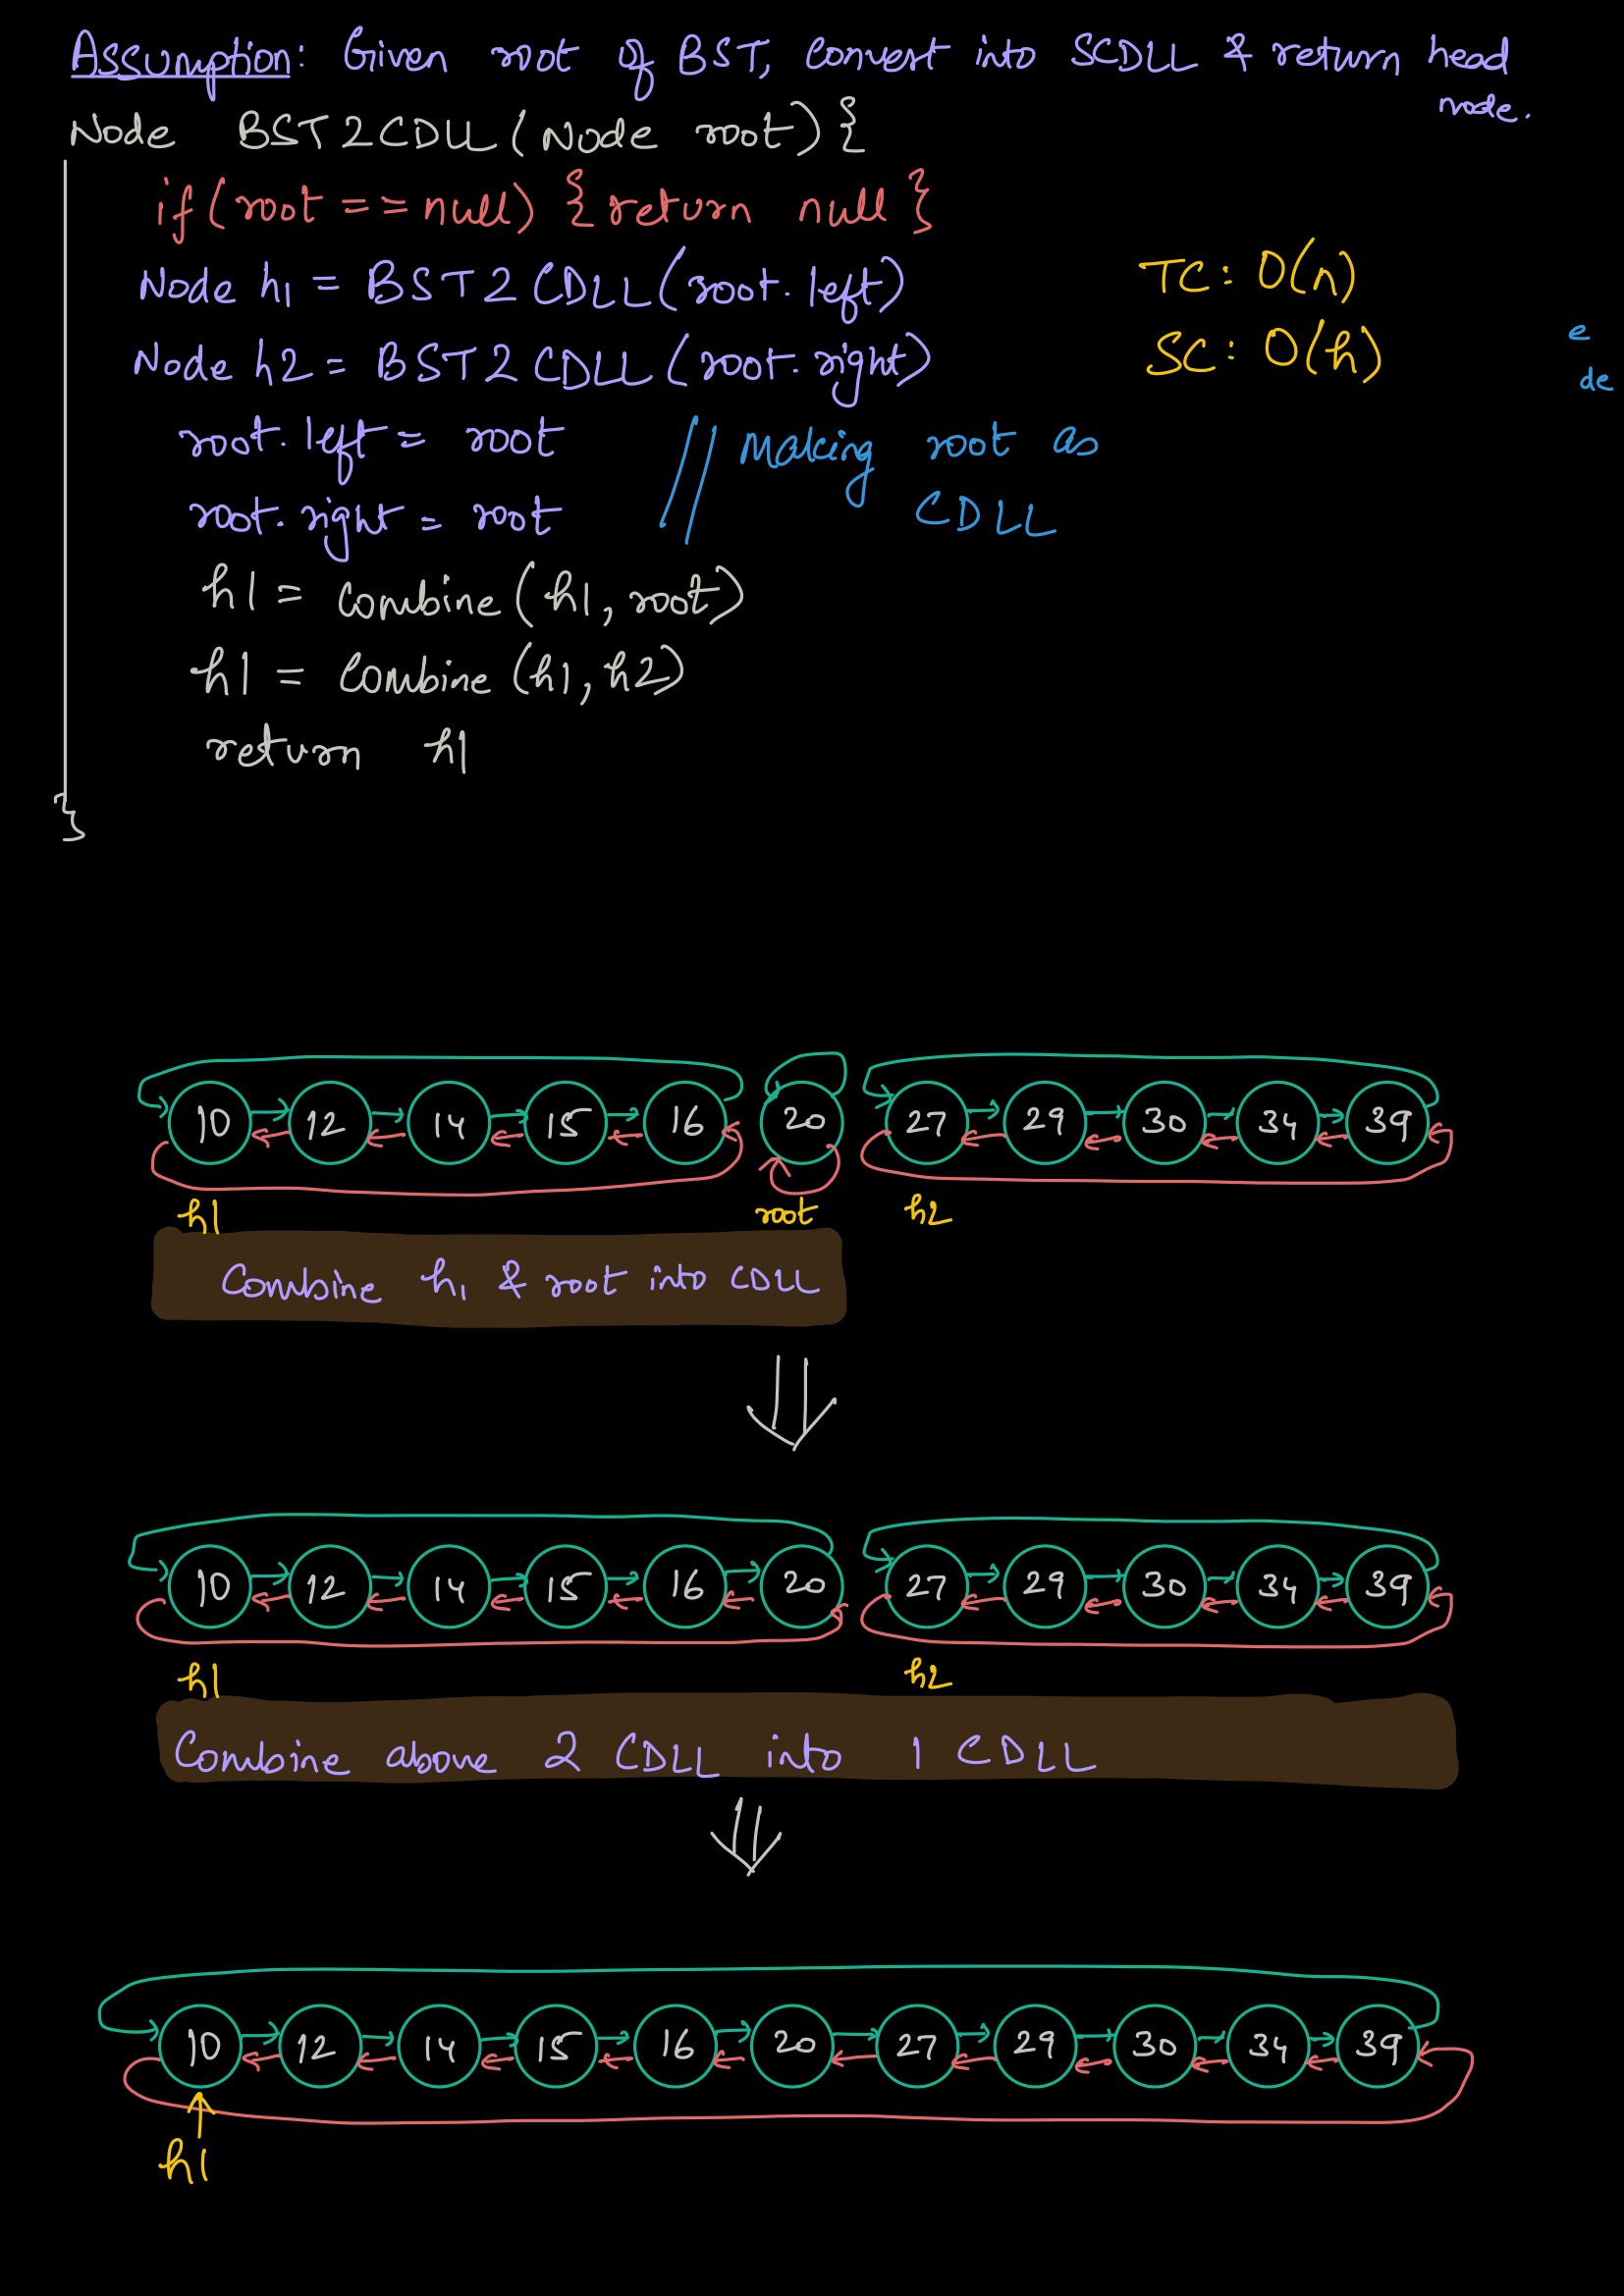 Assumption: Given root of BST, Convert into SCDLL & return head
node.
Node BST2CDLL(Node root){
if(root==null) {return null}
Node h1 = BST2CDLL(root.left)
TC: O(n)
Node h2 = BST2CDLL(root.right)
SC: O(h)
e
de
root.left = root
// Making root as
root.right = root
CDLL
h1 = combine(h1, root)
h1 = Combine (h1, h2)
return h1
}
10 12 14 15 16 20 27 29 30 34 39
h1 root h2
Combine h1 & root into CDLL
10 12 14 15 16 20 27 29 30 34 39
h1 h2
Combine above 2 CDLL into 1 CDLL
10 12 14 15 16 20 27 29 30 34 39
h1